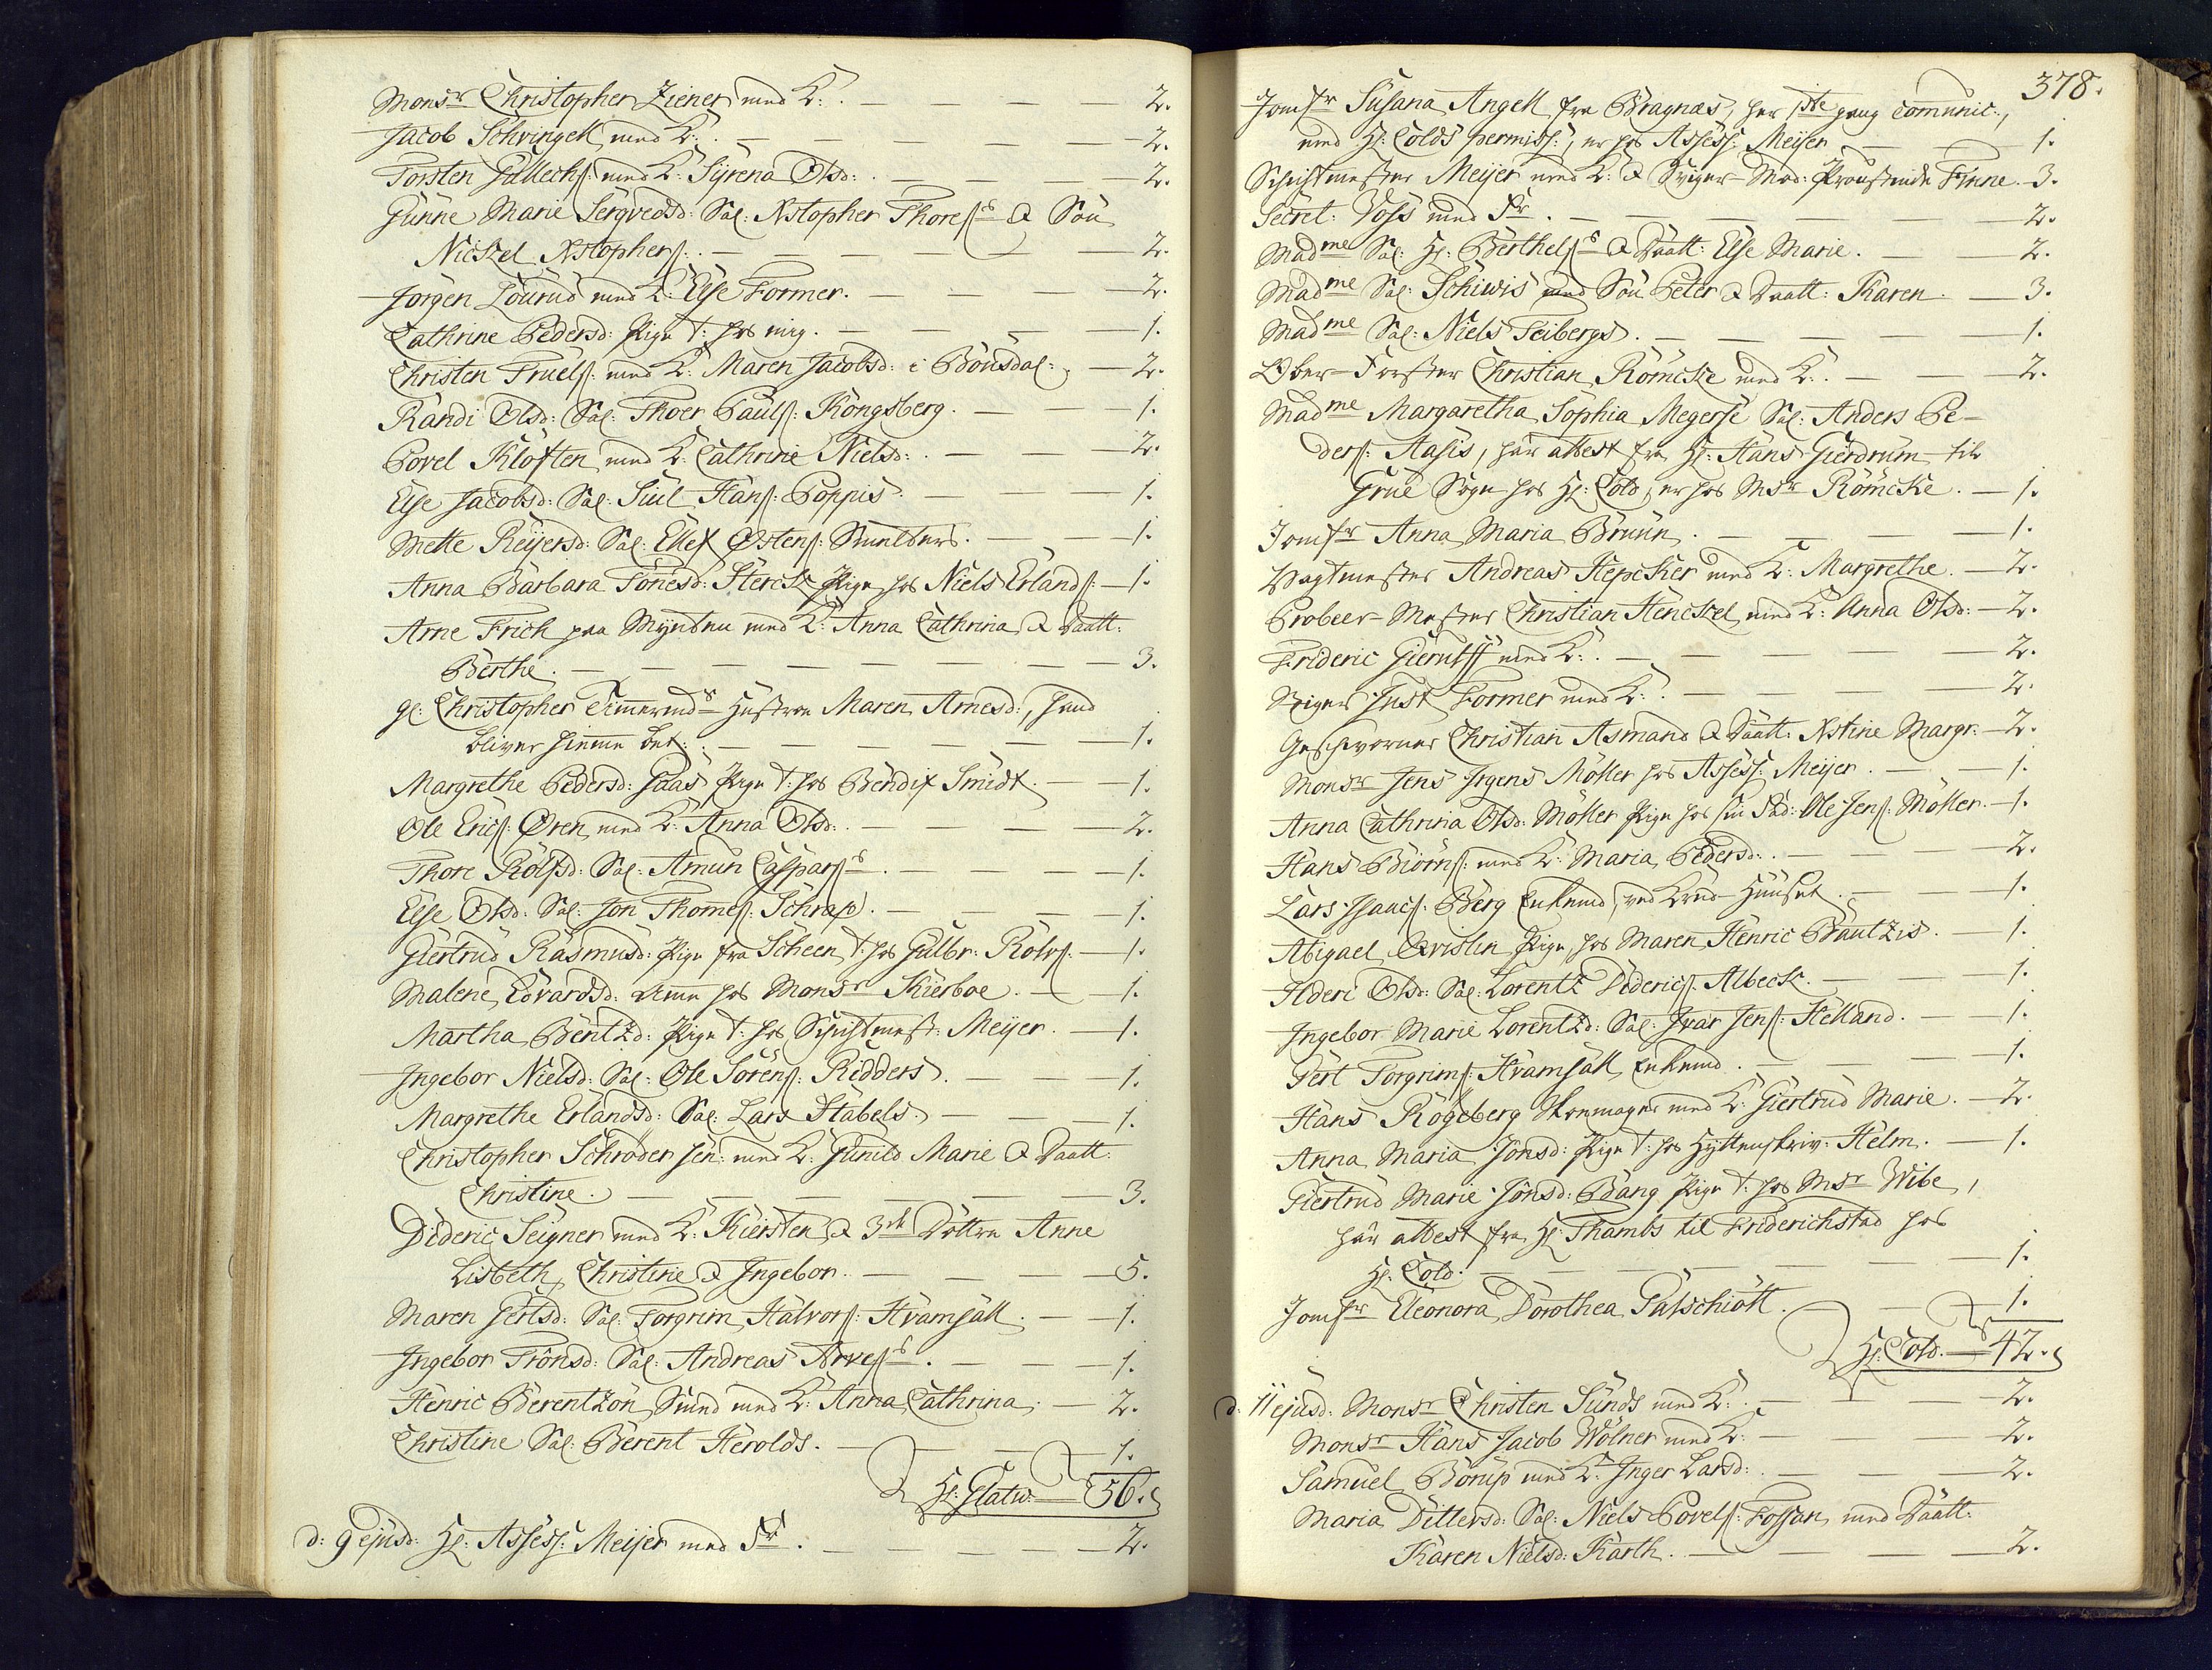 Monsr Christopher Ziener med K: . — — — 2.
Jacob Schvingell med K: . — — — — — 2.
Torsten Gullechs: med K: Syrena Olsd: . — — — 2.
Gunne Marie Sergvedsd: Sal: Xstopher Thoresens & Søn
Nickel Xstophers: . — — — — — — 2.
Jørgen Lourud med K: Else Former. — — — — 2.
Cathrine Pedersd: Pige t: hos mig. — — — — 1.
Christen Truels: med K: Maren Jacobsd: i Bonsdal: . — 2.
Randi Olsd: Sal: Thoer Pauls: Kongsberg. — — — 1.
Povel Kløften med K: Cathrine Nielsd: . — — — 2.
Else Jacobsd: Sal: Siul Hans: Poppis. — — — 1.
Mette Reijersd: Sal: Ellef Østens: Smelters. — — 1.
Anna Barbara Tønesd: Sterck Pige hos Niels Erlands: — 1.
Arne Frich paa Mynten med K: Anna Cathrina & Daatt:
Berthe. — — — — — — — 3.
gl: Christopher Timermds Hustroe Maren Arnesd:,
bliver hiemme bet: . — — — — — 1.
Margrethe Pedersd: Haas Pige t: hos Bendix Smidt. — 1.
Ole Erics: Øren med K: Anna Olsd: . — — — — 2.
Thore Rolfsd: Sal: Amun Caspars . — — — — 1.
Else Olsd: Sal: Jon Thomes: Schrap. — — — 1.
Giertrud Rasmusd: Pige fra Scheen t: hos Gulbr: Rolvs: — 1.
Malene Edvardsd: Amme hos Monsr Kierboe. — — 1.
Martha Bentzd: Pige t: hos Schichtmest: Meijer. — 1.
Ingebor Nielsd: Sal: Ole Sørens: Ridders. — — 1.
Margrethe Erlandsd: Sal: Lars Stabels. — — — 1.
Christopher Schrøder sen: med K: Gunild Marie & Daatt:
Christine. — — — — — — 3.
Dideric Seigner med K: Kiersten & 3de Døttre Anne
Lisbeth, Christine & Ingebor. — — — — 5.
Maren Gertsd: Sal: Torgrim Halvors: Hvamsall. — 1.
Ingebor Tronsd: Sal: Andreas Arves . — — — 1.
Henric Berentzøn Smed med K: Anna Cathrina. — 2.
Christine Sal: Berent Herolds. — — — 1.
Hr: Glatv. — 56.
d: 9 ejusd: Hr: Assess: Meijer med Fr . — — — — — 2.
378.
Jomfr Susana Angell fra Bragnæs, her 1ste gang comunic:,
med Hr: Colds permiss:, er hos Assess: Meijer — — 1.
Schichtmester Meijer med K: & Sviger-Mod: Proustinde Finne. 3.
Secret: Voss med Fr . — — — — — 2.
Madme Sal: Hr: Berthels & Daatt: Else Marie. — — 2.
Madme Sal: Schiwis med Søn Peter & Daatt: Karen. — 3.
Madme Sal: Niels Feibergs. — — — — — 1.
Ober-Forster Christian Römcke med K: . — — 2.
Madme Margaretha Sophia Megerse Sal: Anders Pe-
ders: Aasis, har attest fra Hr: Hans Gierdrum til
Grue Sogn hos Hr: Cold, er hos Msr Römcke. — 1.
Jomfr Anna Maria Bruun. — — — — 1.
Vagtmester Andreas Hepcker med K: Margrethe. — 2.
Probeer-Mester Christian Henckel med K: Anna Olsd: — 2.
Frideric Gierutff med K: . — — — — 2.
Stiger Just Former med K: . — — — — 2.
Geschvorner Christian Asmand & Daatt: Xstine Margr: — 2.
Monsr Jens Jrgens Møller hos Assess: Meijer. — — 1.
Anna Cathrina Olsd: Møller Pige hos sin Fad: Ole Jens: Møller. — 1.
Hans Biørns: med K: Maria Pedersd: . — — — 2.
Lars Isaacs: Berg Enkemd, ved Huuset. — — 1.
Abigael Qvislin Pige hos Maren Henric Bautzis. — 1.
Ilderi Olsd: Sal: Lorentz Diderics: Albeck. — — 1.
Ingebor Marie Lorentzd: Sal: Ivar Jens: Helland. — — 1.
Gert Torgrims: Hvamsall Enkemd . — — — 1.
Hans Rogeberg Skomager med K: Giertrud Marie. — 2.
Anna Maria Jonsd: Pige t: hos Hytteskriv: Helm. — 1.
Giertrud Marie Jonsd: Bang Pige t: hos Msr Wibe,
har attest fra Hr: Thambs til Friderichstad hos
Hr: Cold. — — — — — — 1.
Jomfr Eleonora Dorothea Patschiøtt. — — 1.
Hr: Cold. — 42.
d: 11 ejusd: Monsr Christen Sunds med K: . — — — 2.
Monsr Hans Jacob Wølner med K: — — — 2.
Samuel Borup med K: Inger Larsd: . — — — 2.
Maria Dittersd: Sal: Niels Povels: Fossan med Daatt:
Karen Nielsd: Karth. — — — — 2.